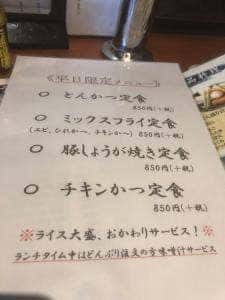 《平日限定メニュー》
○ とんかつ定食
850円(+税)
○ ミックスフライ定食
(エビ、ひれかつ、チキンかつ) 850円(+税)
○ 豚しょうが焼き定食
850円(+税)
○ チキンかつ定食
850円(+税)
※ライス大盛、おかわりサービス!※
ランチタイム中はどんぶり注文の方味噌汁サービス